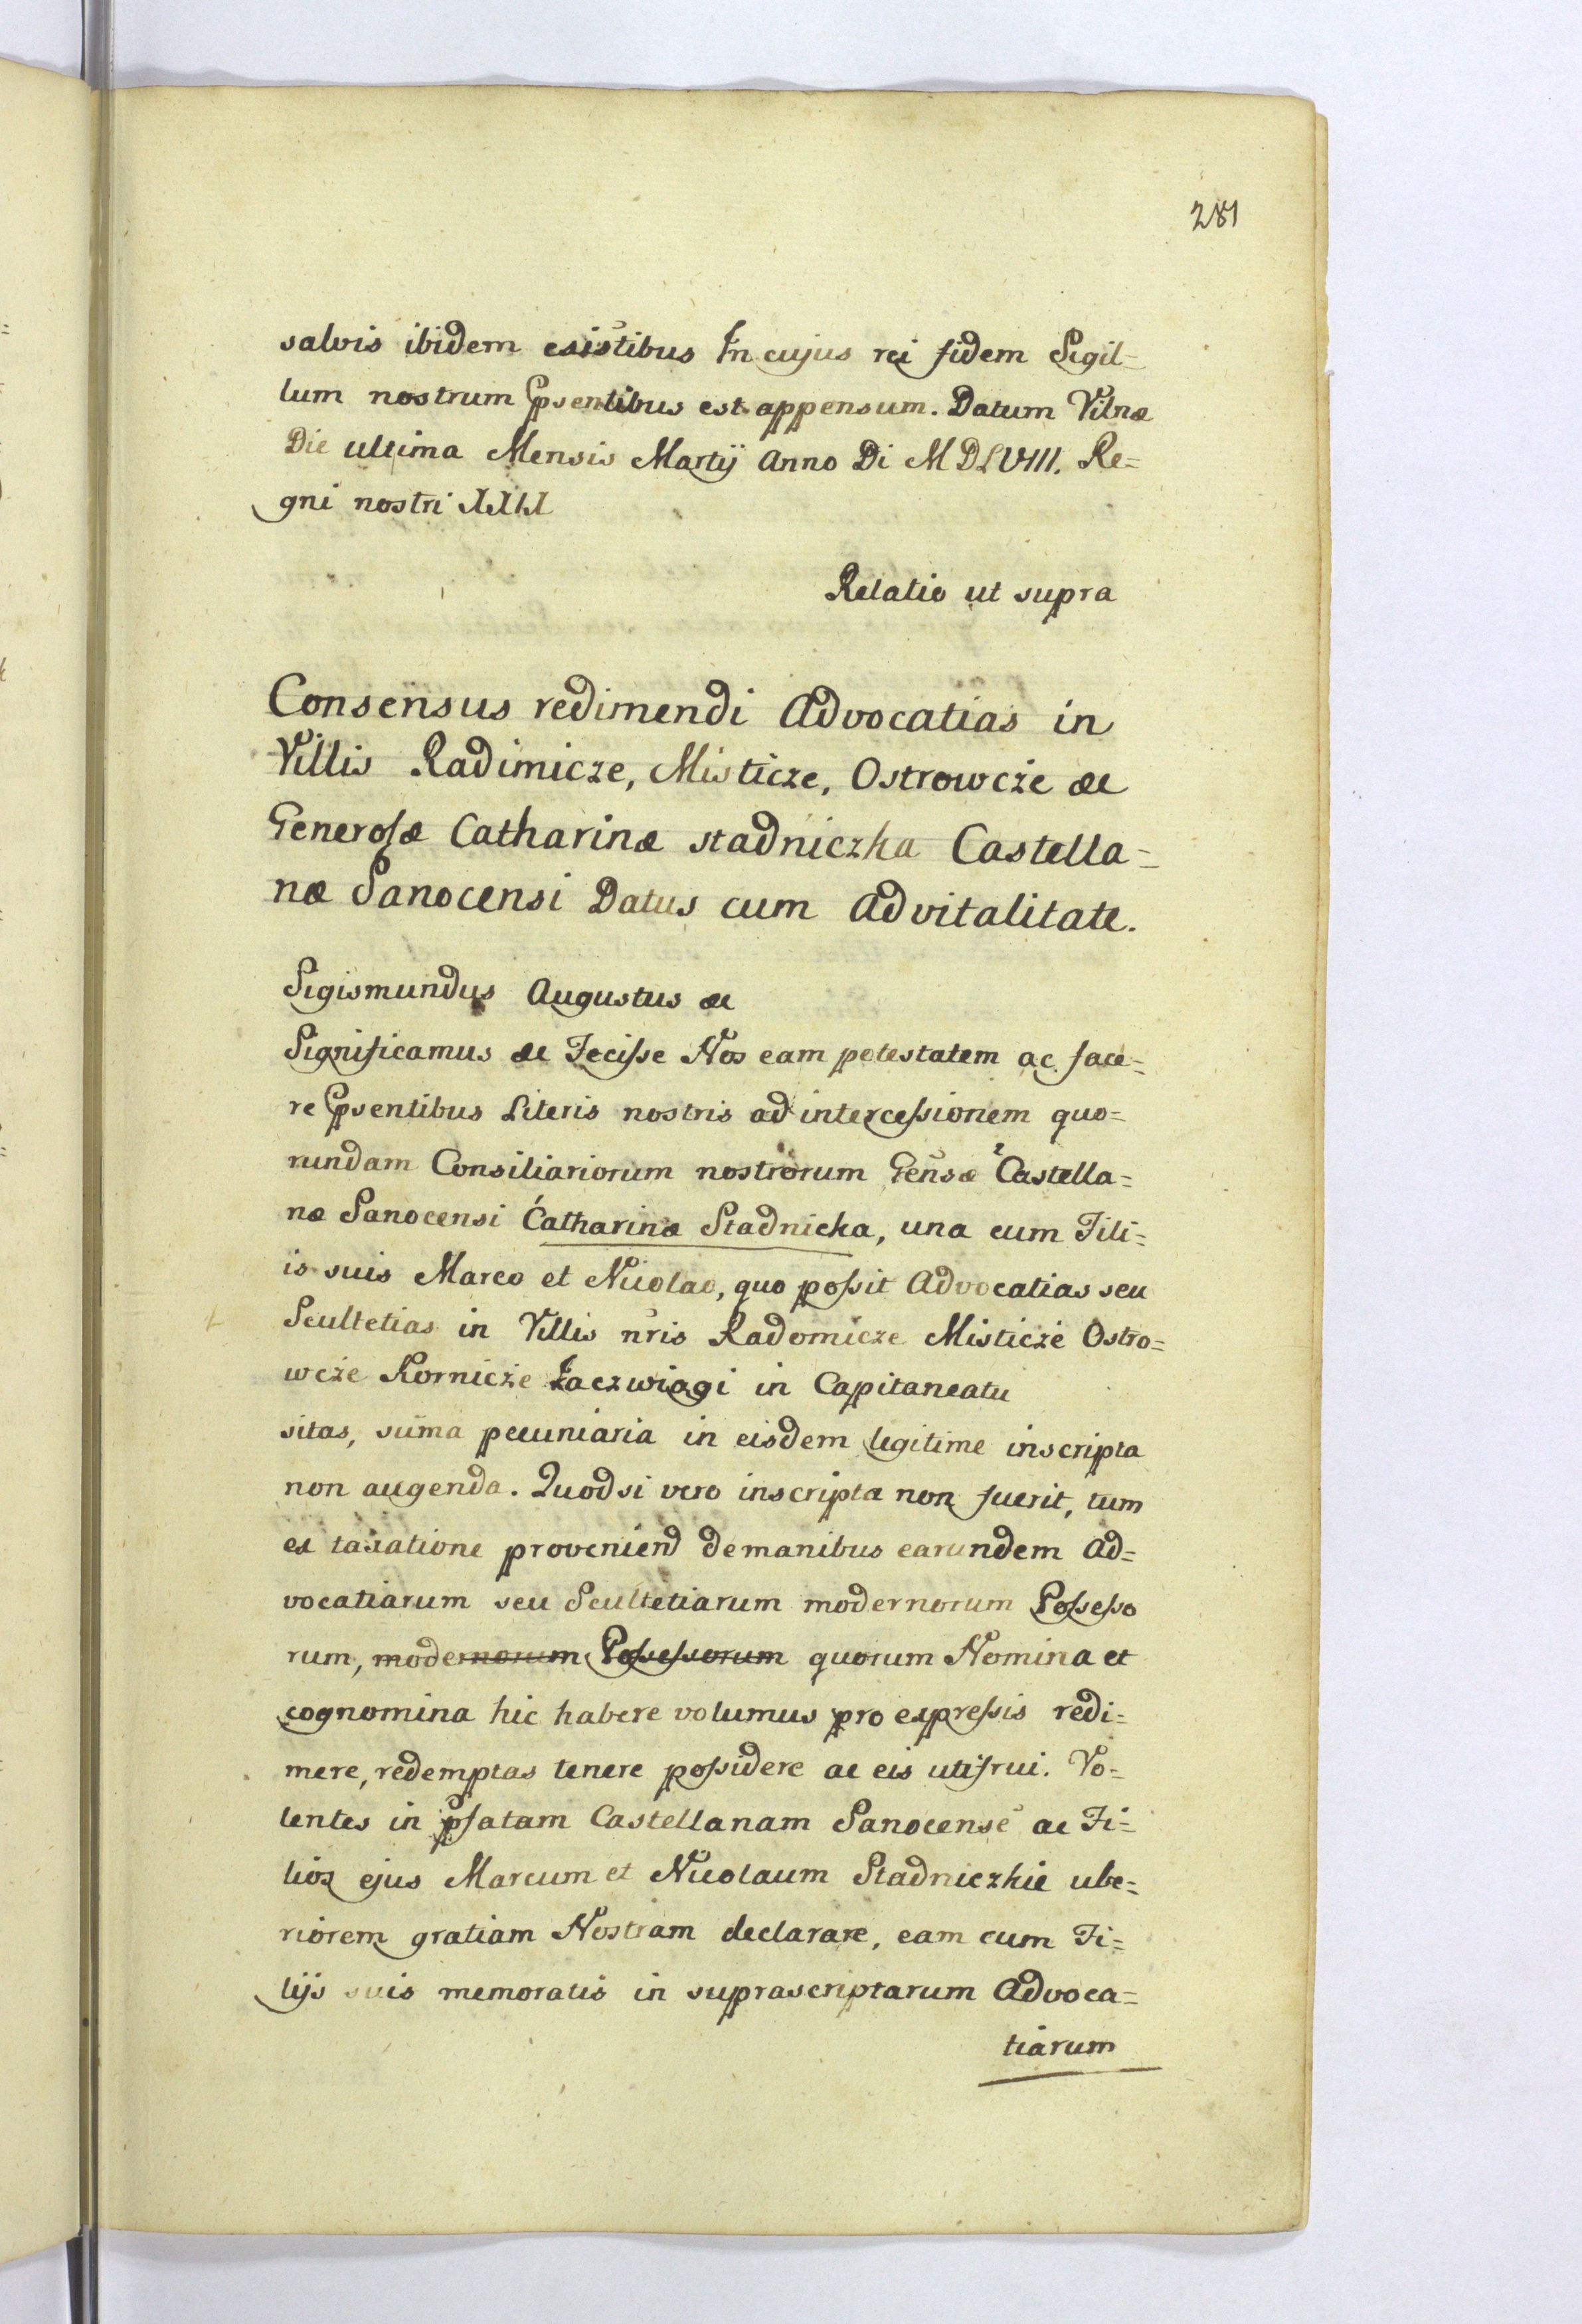 281
salvis ibidem existibus In cujus rei fidem Sigil-
lum nostrum Psentibus est appensum. Datum Vilnæ
Die ultima Mensis Martij Anno Di MDLVIII. Re=
gni nostri
Relatio ut supra
Consensus redimendi Advocatias in
Villis Radimicze, Misticze, Ostrowcże &c
Generosæ Catharinæ Stadniczka Castella=
næ Sanocensi Datus cum Advitalitate.
Sigismundus Augustus &c
Significamus &c Fecisse Nos eam potestatem ac face=
re Psentibus Literis nostris ad intercessionem quo=
rundam Consiliariorum nostrorum Gensæ Castella=
næ Sanocensi Catharinæ Stadnicka, una cum Fili=
is suis Marco et Nicolao, quo possit Advocatias seu
Scultetias in Villis nris Radomicze Misticże Ostro=
wcże Kornicże Jaczwiagi in Capitaneatu
sitas, suma pecuniaria in eisdem legitime inscripta
non augenda. Quodsi vero inscripta non fuerit, tum
ex taxatione proveniend de manibus earundem Ad=
vocatiarum seu Scultetiarum modernorum Possesso
rum, modernorum Possessorum quorum Nomina et
cognomina hic habere volumus pro expressis redi=
mere, redemptas tenere possidere ac eis utifrui. Vo=
lentes in Pfatam Castellanam Sanocense ac Fi=
lios ejus Marcum et Nicolaum Stadniczkie ube=
riorem gratiam Nostram declarare, eam cum Fi=
lijs suis memoratis in suprascriptarum Advoca=
tiarum